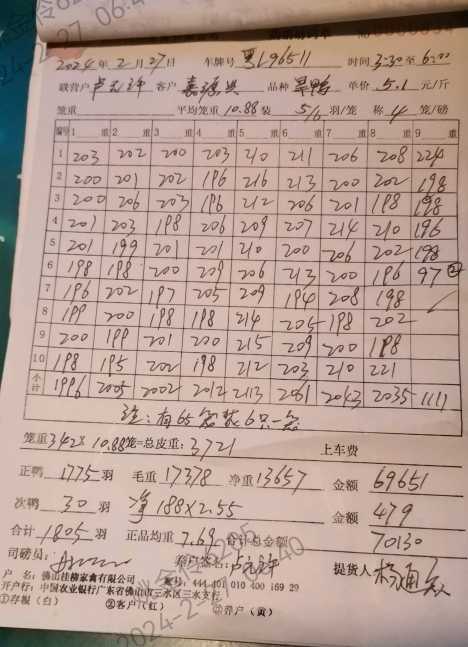 2024年2月27日 车牌号 粤L96511 时间 3:30至6:00
联营户 卢元许 客户 嘉源兴 品种 旱鸭 单价 5.1 元/斤
笼重 平均笼重 10.88 装 5/6 羽/笼 称 4 笼/磅
编号 1 重 2 重 3 重 4 重 5 重 6 重 7 重 8 重 9 重
1 203 202 200 203 210 211 206 208 224
2 200 201 202 196 216 213 200 202 198
3 200 206 203 196 212 206 201 198 198
4 201 203 198 206 209 207 214 210 196
5 201 199 201 201 210 200 206 202 198
6 198 198 200 209 206 213 200 196 97 ②
7 196 202 197 205 209 194 208 198
8 199 200 198 198 214 205 198 202
9 200 199 201 200 215 209 200 198
10 198 195 202 198 212 203 210 221
小计 1996 2005 2002 2012 2113 2061 2043 2035 1111
注:有65笼装6只一笼
笼重 342 × 10.88 笼=总皮重: 3721 上车费
正鸭 1775 羽 毛重 17378 净重 13657 金额 69651
次鸭 30 羽 净 188×2.55 金额 479
合计 1805 羽 正品均重 7.69 合计总金额 70130
司磅员: 养户签名: 卢元许 提货人
户 名: 佛山佳柳家禽有限公司 账号: 444 401 010 400 169 29
开户行: 中国农业银行广东省佛山市三水区三水支行
①存根(白) ②客户(红) ③养户(黄)